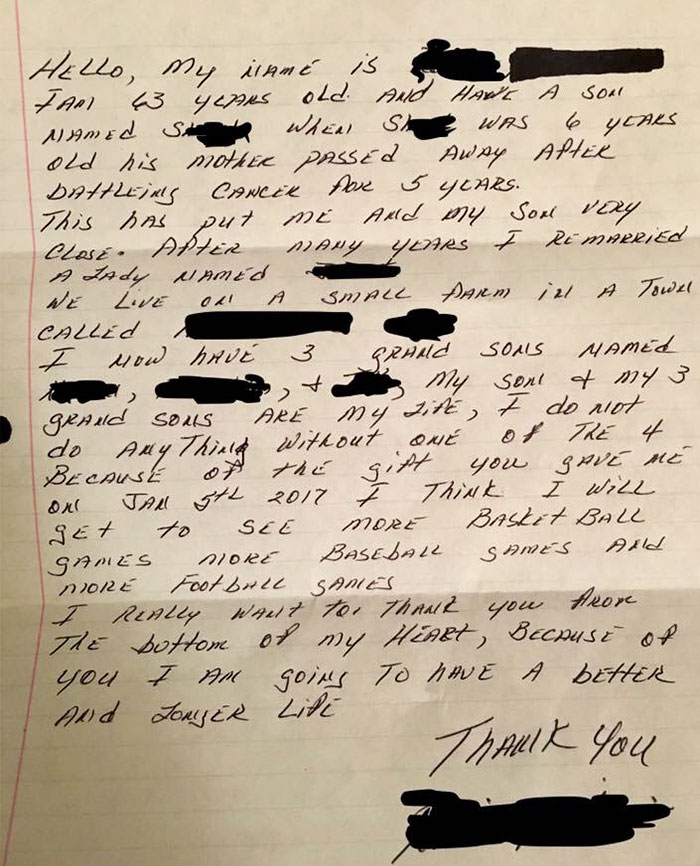 HELLO, MY NAME IS
I AM 63 YEARS OLD. AND HAVE A SON
NAMED S WHEN SH WAS 6 YEARS
OLD his MOTHER PASSED AWAY AFTER
BATTLEING CANCER FOR 5 YEARS.
This has put ME AND MY SON VERY
CLOSE. AFTER MANY YEARS I REMARRIED
A LADY NAMED
WE LIVE ON A SMALL FARM IN A TOWN
CALLED
I NOW HAVE 3 GRAND SONS NAMED
, , & , MY SON & MY 3
GRAND SONS ARE MY LIFE, I do NOT
do ANYTHING WITHOUT ONE OF THE 4
BECAUSE OF the gift you GAVE ME
ON JAN 5th 2017 I THINK I WILL
GET to SEE MORE BASKETBALL
GAMES MORE BASEBALL GAMES AND
MORE FOOTBALL GAMES
I REALLY WANT to THANK YOU FROM
THE bottom OF MY HEART, BECAUSE OF
YOU I AM going TO HAVE A BETTER
AND LONGER LIFE
THANK YOU